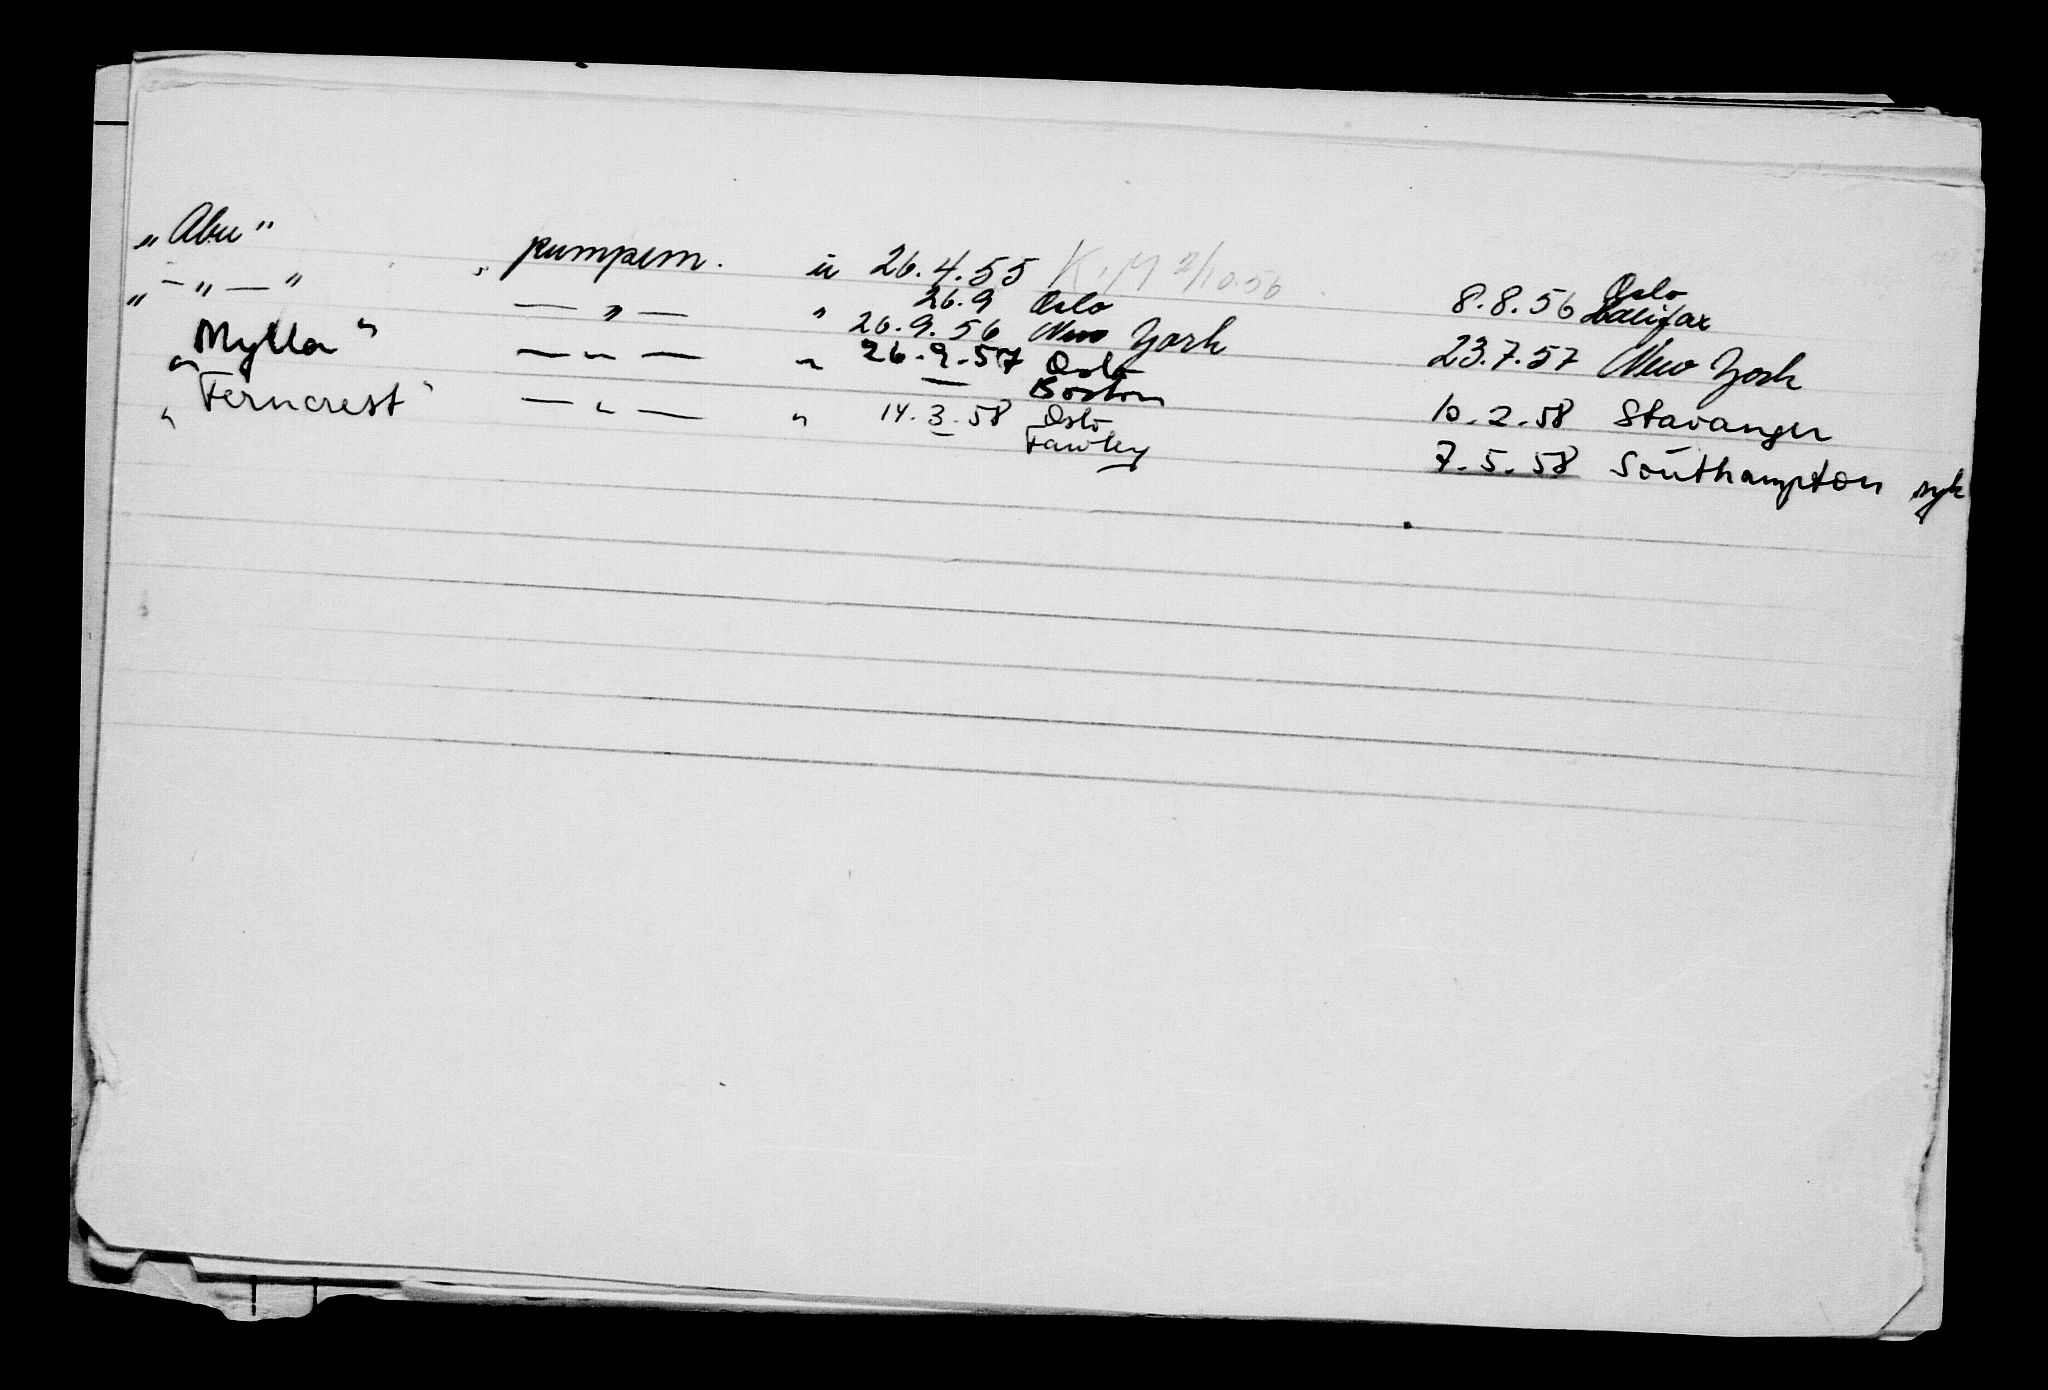 „Abu" pumpem. u 26.4.55 K.M 2/10.56 8.8.56 Oslo Halifax
„ — „ — " — „ — „ 26.9 Oslo 26.9.56 New York 23.7.57 New York
„ Mylla " — „ — „ 26.9.57 Oslo Boston 10.2.58 Stavanger
„ Ferncrest " — „ — „ 14.3.58 Oslo Fawley 7.5.58 Southampton syk